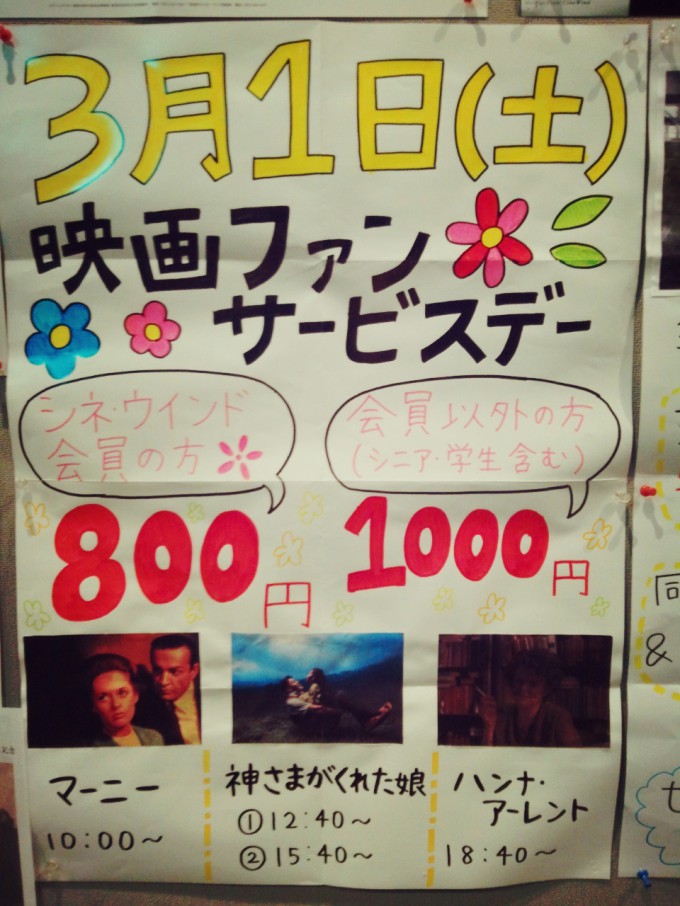 3月1日(土)
映画ファン
サービスデー
シネ・ウインド
会員の方
会員以外の方
(シニア・学生含む)
800円
1000円
マーニー
10:00～
神さまがくれた娘
①12:40～
②15:40～
ハンナ・
アーレント
18:40～
同
&